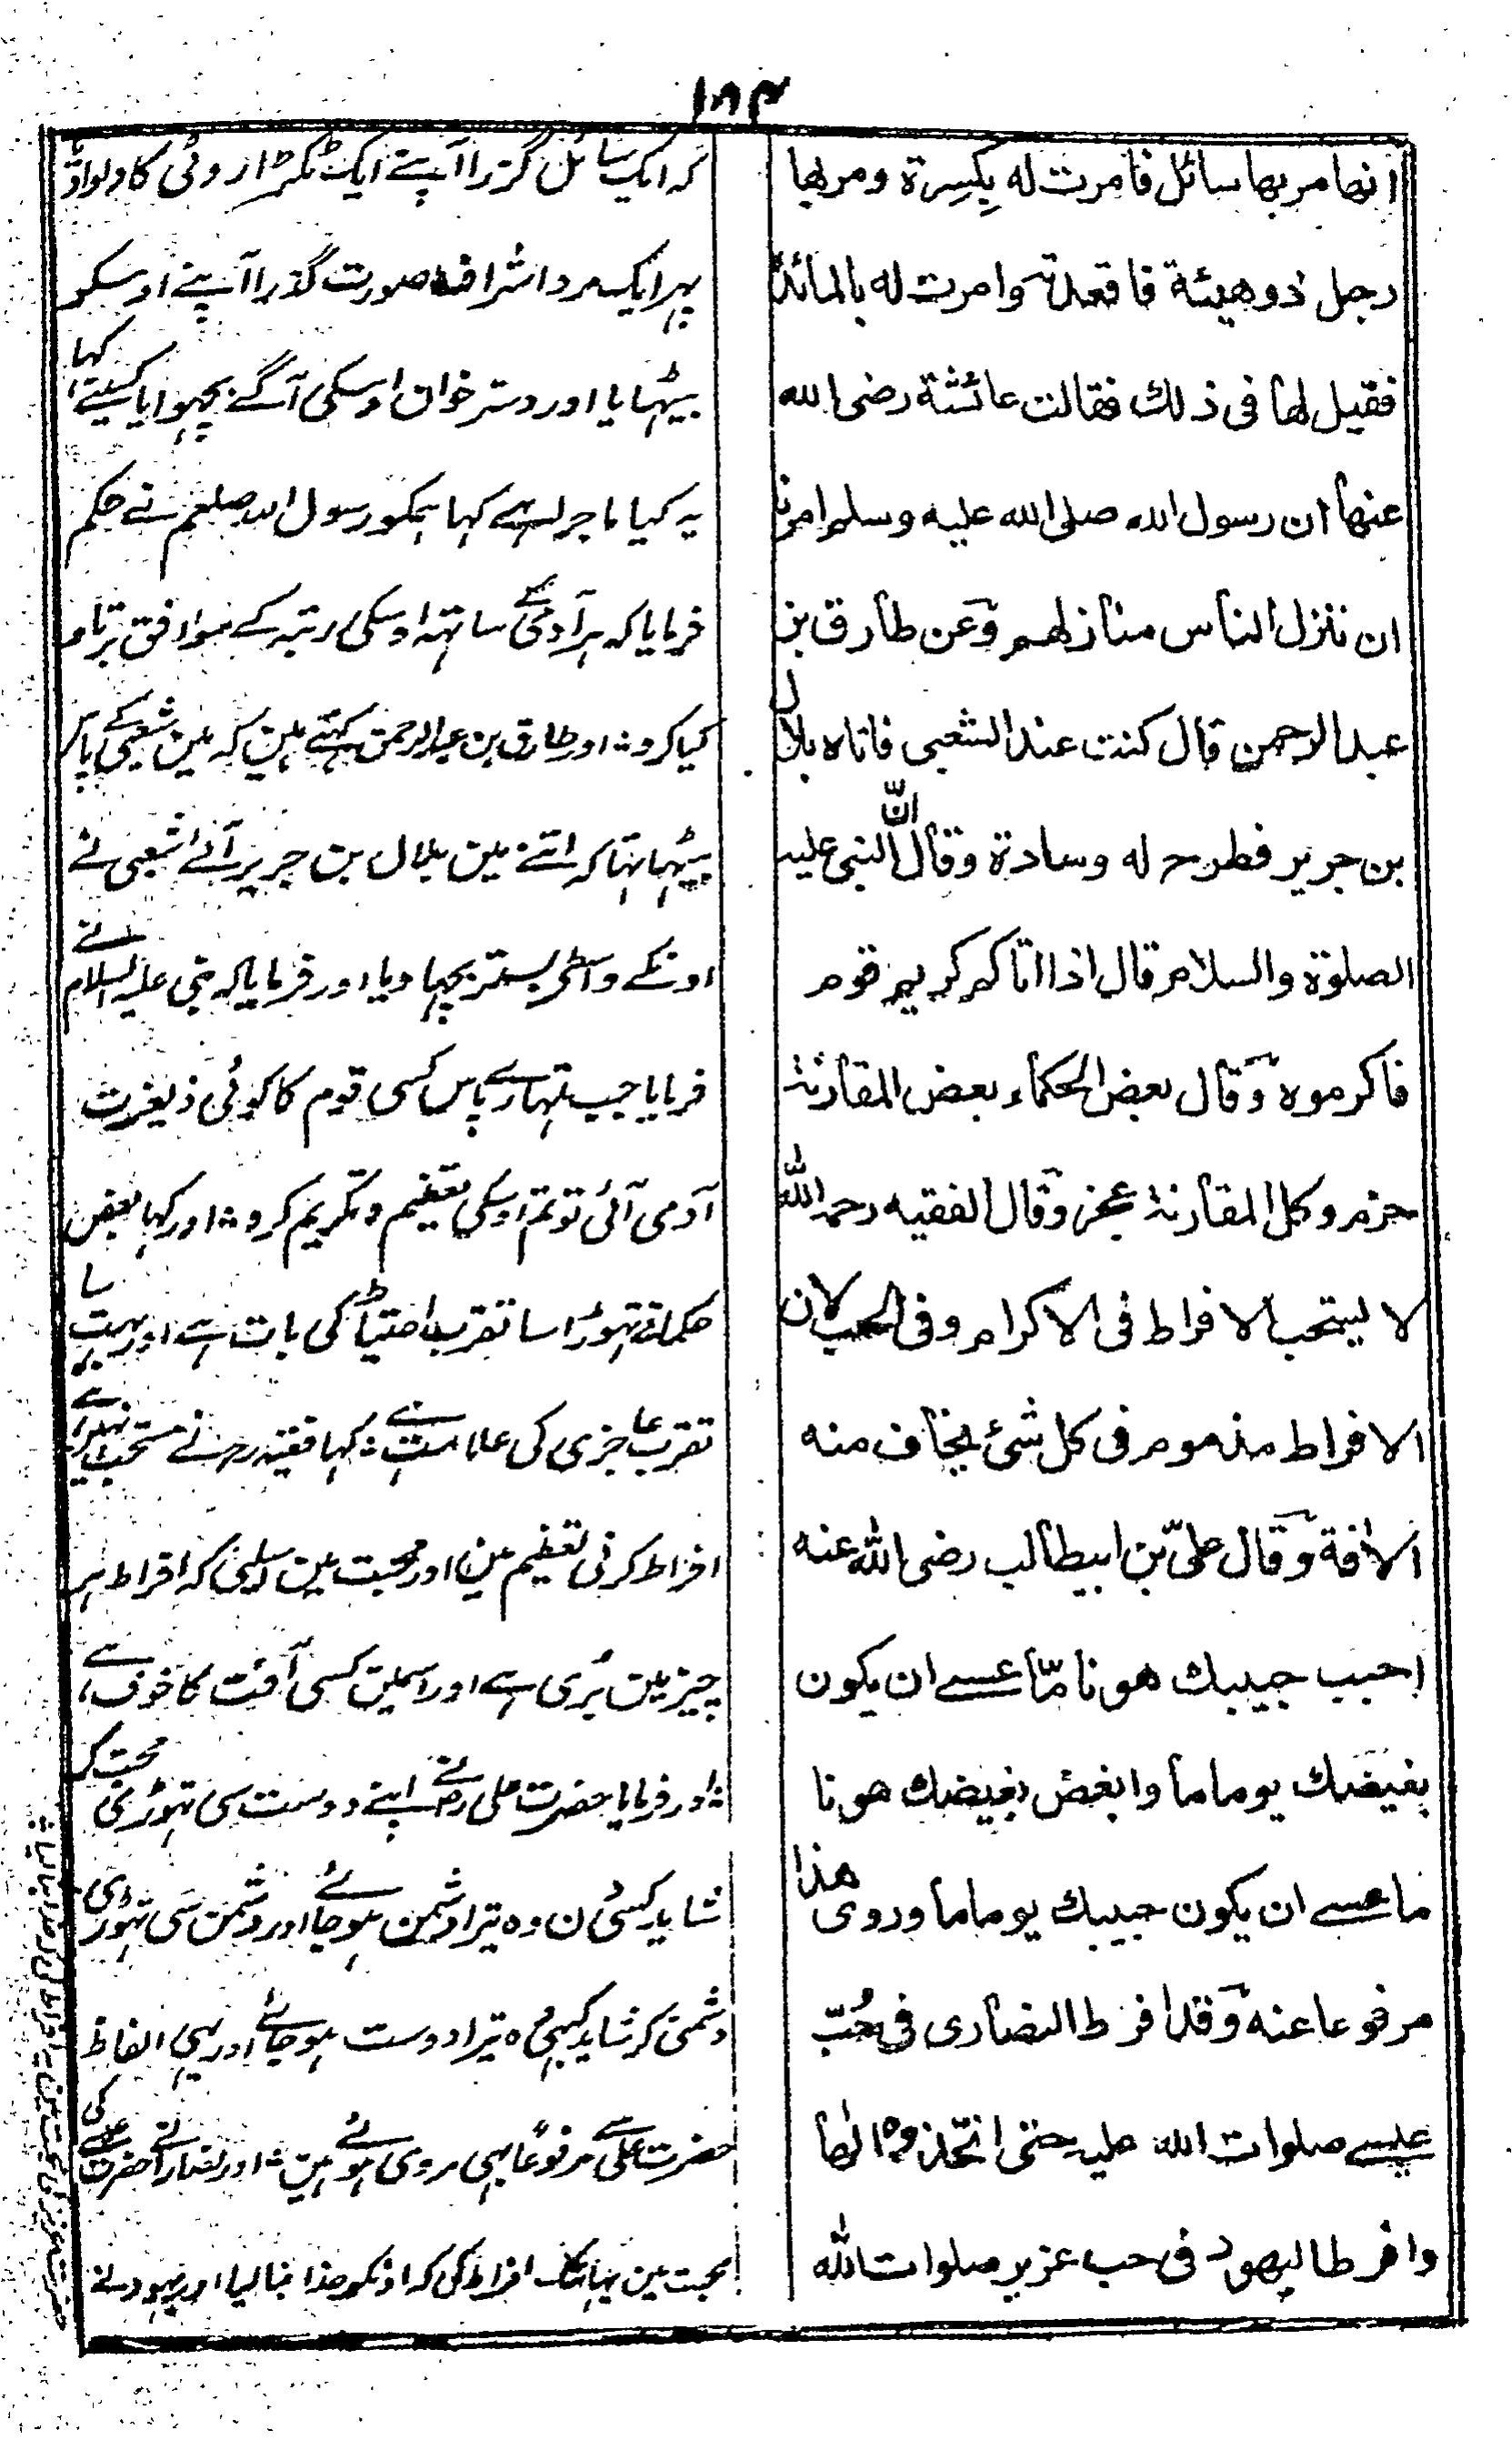 ۱۸۳
انها مر بها سائل فامرت له بِكِسِرة ومر بها
رجل ذو هيئة فاقعدته وامرت له بالمائدة
فقيل لها فى ذلك فقالت عائشة رضى الله
عنها ان رسول الله صلى الله عليه وسلم امرنا
ان ننزل الناس منازلهم وعن طارق بن
عبد الرحمن قال كنت عند الشعبى فاتاه بلال
بن جرير فطرح له وسادة وقال انّ النبى عليه
الصلوة والسلام قال اذا اتاكم كريم قوم
فاكرموه وقال بعض الحكماء بعض المقارنة
حزم وكل المقارنة عجز وقال الفقيه رحمه الله
لا يستحب الافراط فى الاكرام وفى الحب لان
الافراط مذموم فى كل شئ يخاف منه
الافة وقال علىّ بن ابيطالب رضى الله عنه
احبب حبيبك هونا مّا عسے ان يكون
بغيضك يوما ما وابغض بغيضك هونا
ما عسے ان يكون حبيبك يوما ما وروى هذا
مرفوعا عنه وقد افرط النصارى فى حُبّ
عيسے صلوات الله عليه حتى اتّخذوه الٰها
وافرط اليهود فى حب عزير صلوات الله
کہ ایک سائل گزرا آپنے ایک ٹکڑا روٹی کا دلوادیا
پہر ایک مرد اشراف صورت گذرا آپنے اوسکو
بیٹہایا اور دستر خوان اوسکی آگے بچہوایا کسینے کہا
یہ کیا ماجرا ہے کہا ہمکو رسول اللہ صلعم نے حکم
فرمایا کہ ہر آدمی کے ساتہہ اوسکی رتبہ کے موافق برتاو
کیا کرو ؞ اور طارق بن عبد الرحمن کہتے ہین کہ مین شعبی کے پاس
بیٹہا تہا کہ اتنے مین بلال بن جریر آئے شعبی نے
اونکے واسطی بستر بچہا دیا اور فرمایا کہ نبی علیہ السلام نے
فرمایا جب تمہارے پاس کسی قوم کا کوئی ذیعزت
آدمی آئی تو تم اوسکی تعظیم و تکریم کرو ؞ اور کہا بعض
حکمانے تہوڑا سا تقرب احتیاط کی بات ہے اور بہت سا
تقرب عاجزی کی علامت ہے ؞ کہا فقیہ رحہ نے مستحب نہین ہے
افراط کرنی تعظیم مین اور محبت مین اسلیی کہ افراط ہر
چیز مین بُری ہے اور اسمین کسی آفت کا خوف ہے
؞ اور فرمایا حضرت علی رضہ نے اپنے دوست سی تہوڑی محبت کر
شاید کسی دن وہ تیرا دشمن ہو جائے اور دشمن سی تہوڑی
دشمنی کر شاید کبہی وہ تیرا دوست ہو جائے اور یہی الفاظ
حضرت علی سے مرفوعًا بہی مروی ہوئے ہین ؞ اور نصارا نے حضرت عیسے کی
محبت مین یہانتک افراط کی کہ اونکو خدا بنا لیا اور یہود نے